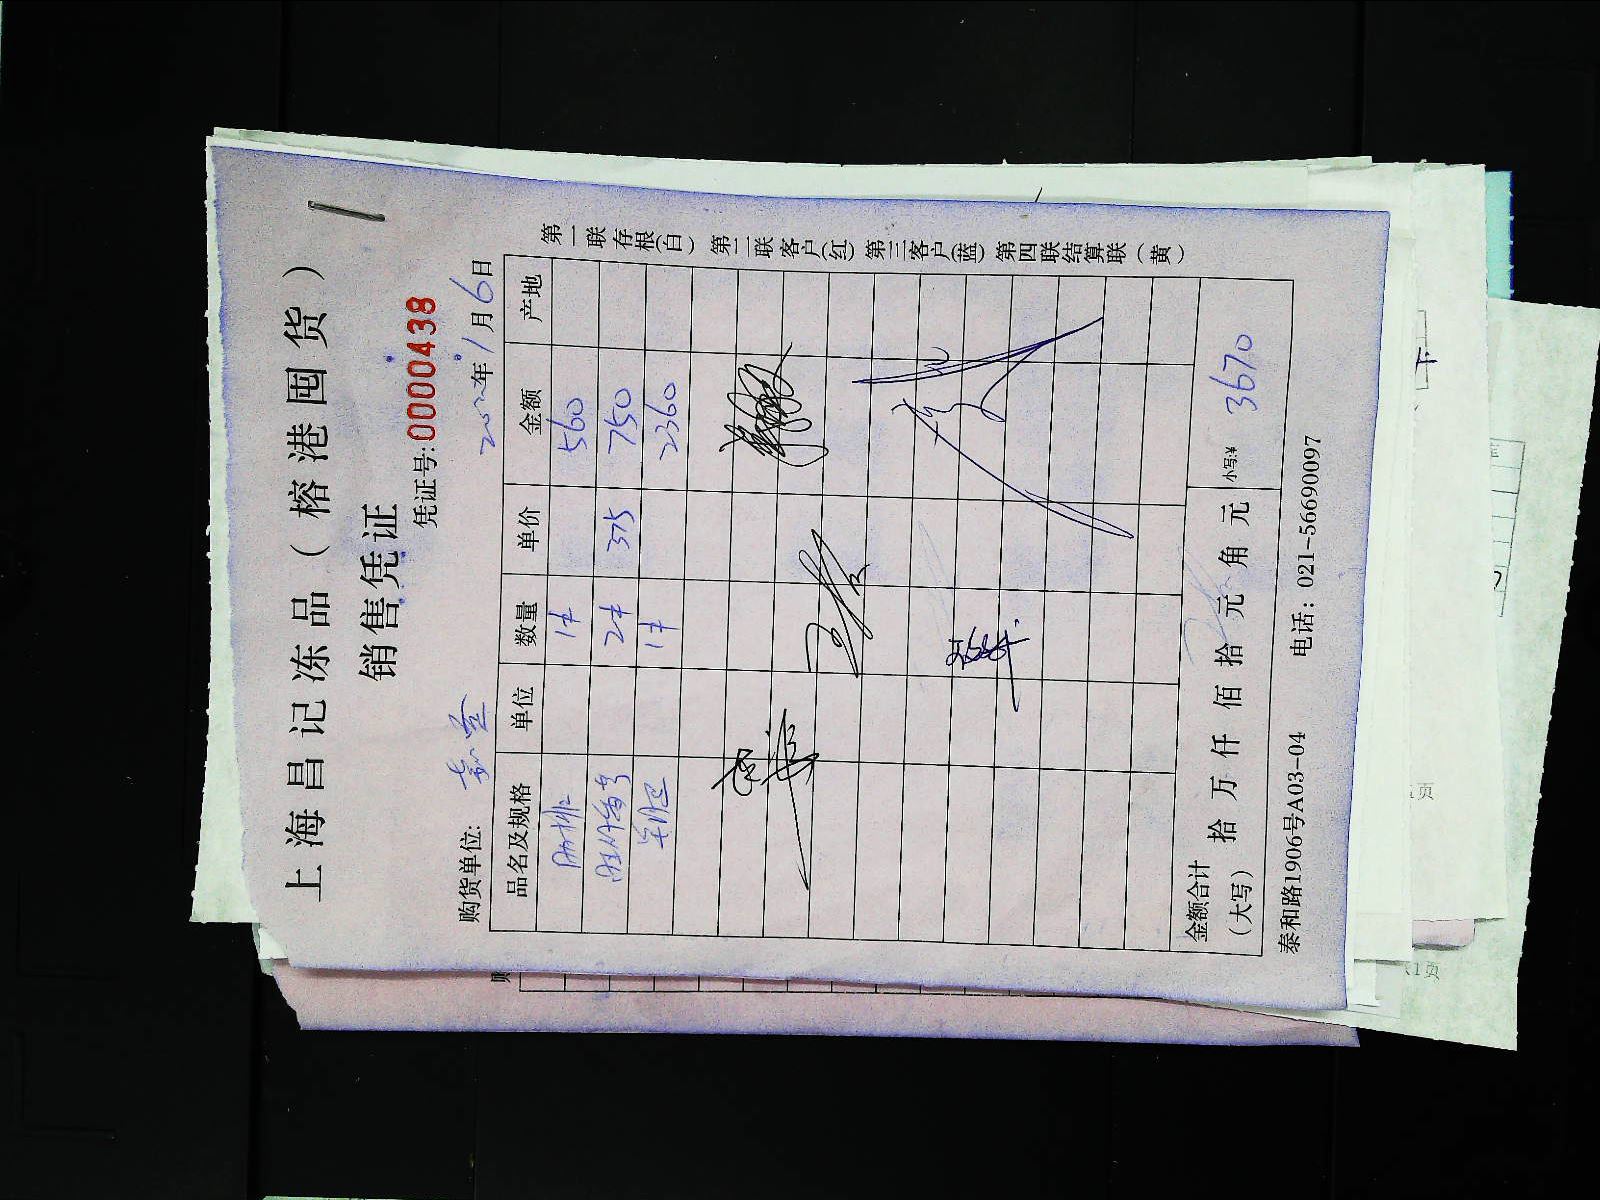 上海昌记冻品（榕港囤货）
销售凭证
凭证号:0000438
购货单位: 2022年1月6日
品名及规格 单位 数量 单价 金额 产地
1件 560
2件 375 750
羊肚 1件 2360
金额合计（大写） 拾 万 仟 佰 拾 元 角 元 小写:¥ 3670
泰和路1906号A03-04 电话：021-56690097
第一联存根(白) 第二联客户(红) 第三客户(蓝) 第四联结算联（黄）